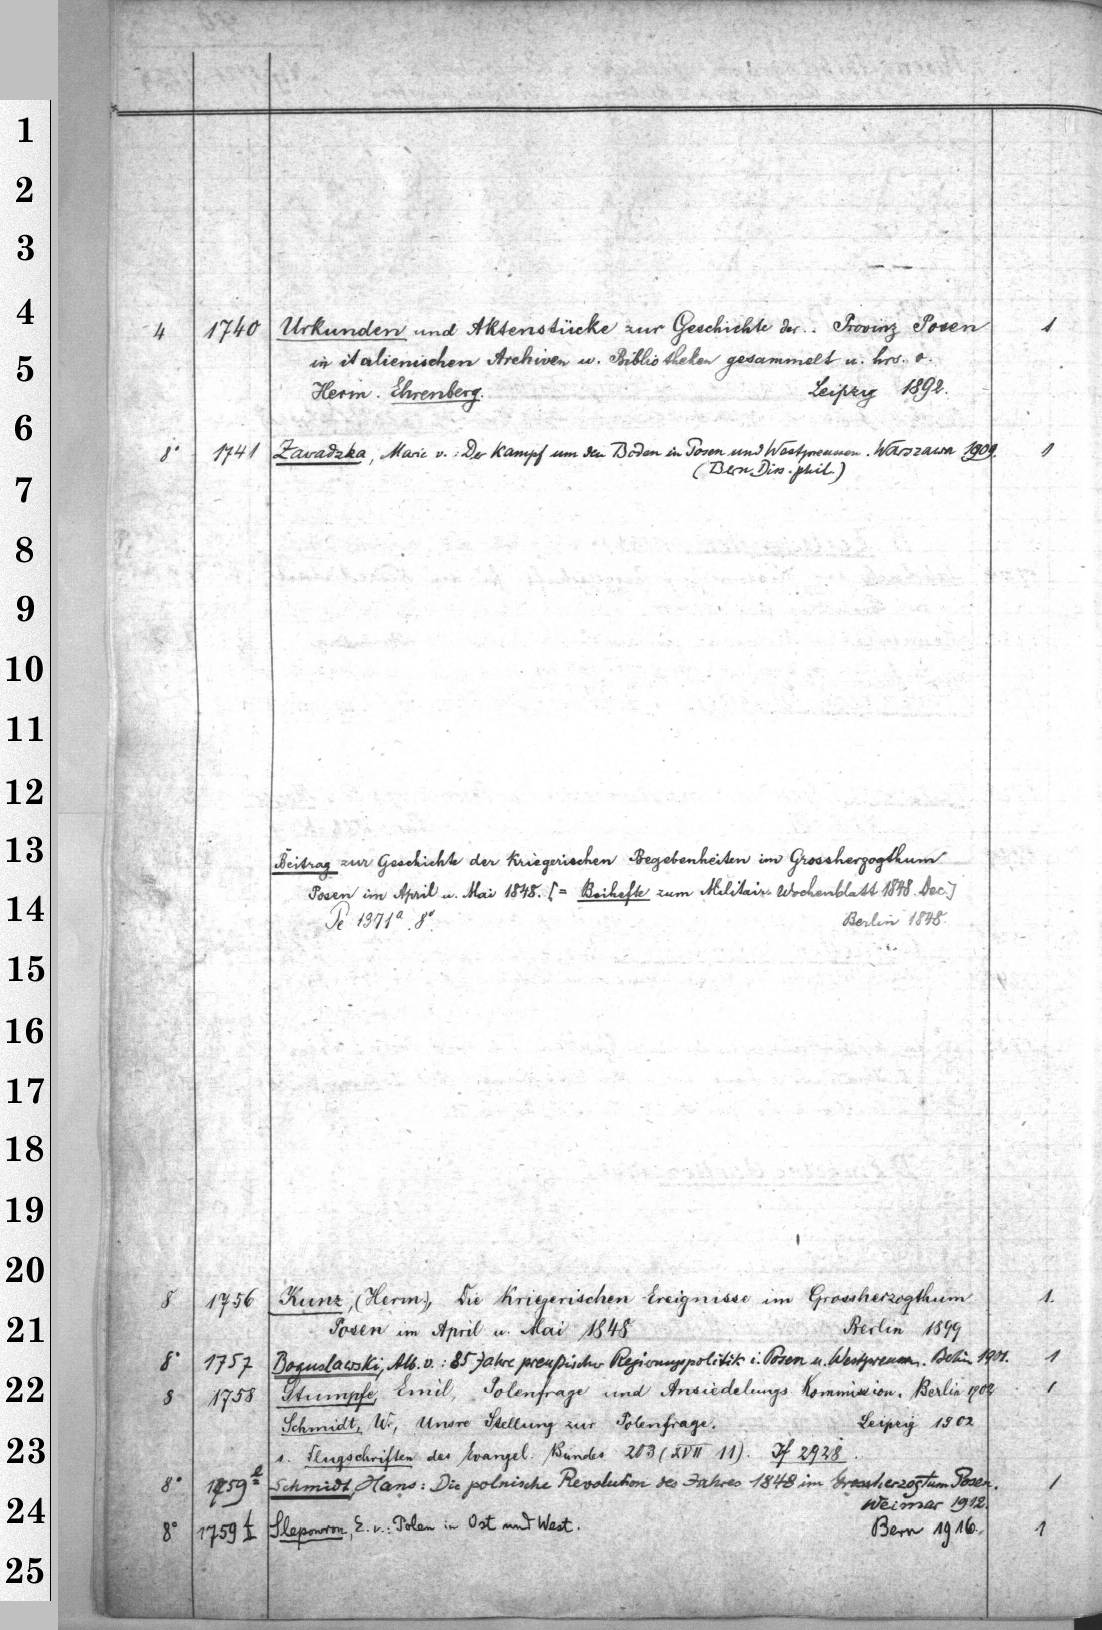 1
2
3
4
5
6
7
8
9
10
11
12
13
14
15
16
17
18
19
20
21
22
23
24
25
4 1740 Urkunden und Aktenstücke zur Geschichte der.. Provinz Posen 1
in italienischen Archiven u. Bibliotheken gesammelt u. hrs. v.
Herm. Ehrenberg. Leipzig 1892.
8° 1741 Zawadzka, Marie v.: Der Kampf um den Boden in Posen und Westpreussen. Warszawa 1909. 1
(Bern. Diss. phil.)
Beitrag zur Geschichte der kriegerischen Begebenheiten im Grossherzogthum
Posen im April u. Mai 1848. [= Beihefte zum Militair-Wochenblatt 1848. Dec.]
Pe 1371a. 8°. Berlin 1848.
8 1756 Kunz, (Herm.), Die kriegerischen Ereignisse im Grossherzogthum 1.
Posen im April u. Mai 1848 Berlin 1899
8° 1757 Boguslawski, Alb. v.: 85 Jahre preußischer Regierungspolitik i. Posen u. Westpreussen. Berlin 1901. 1
8 1758 Stumpfe, Emil, Polenfrage und Ansiedelungs Kommission. Berlin 1902 1
Schmidt, W., Unsre Stellung zur Polenfrage. Leipzig 1902
s. Flugschriften des Evangel. Bundes 203 (XVII 11). If 2928.
8° 1759 Schmidt, Hans: Die polnische Revolution des Jahres 1848 im Grossherzogtum Posen. 1
Weimar 1912.
8° 1759 Slepowron, E. v.: Polen in Ost und West. Bern 1916. 1